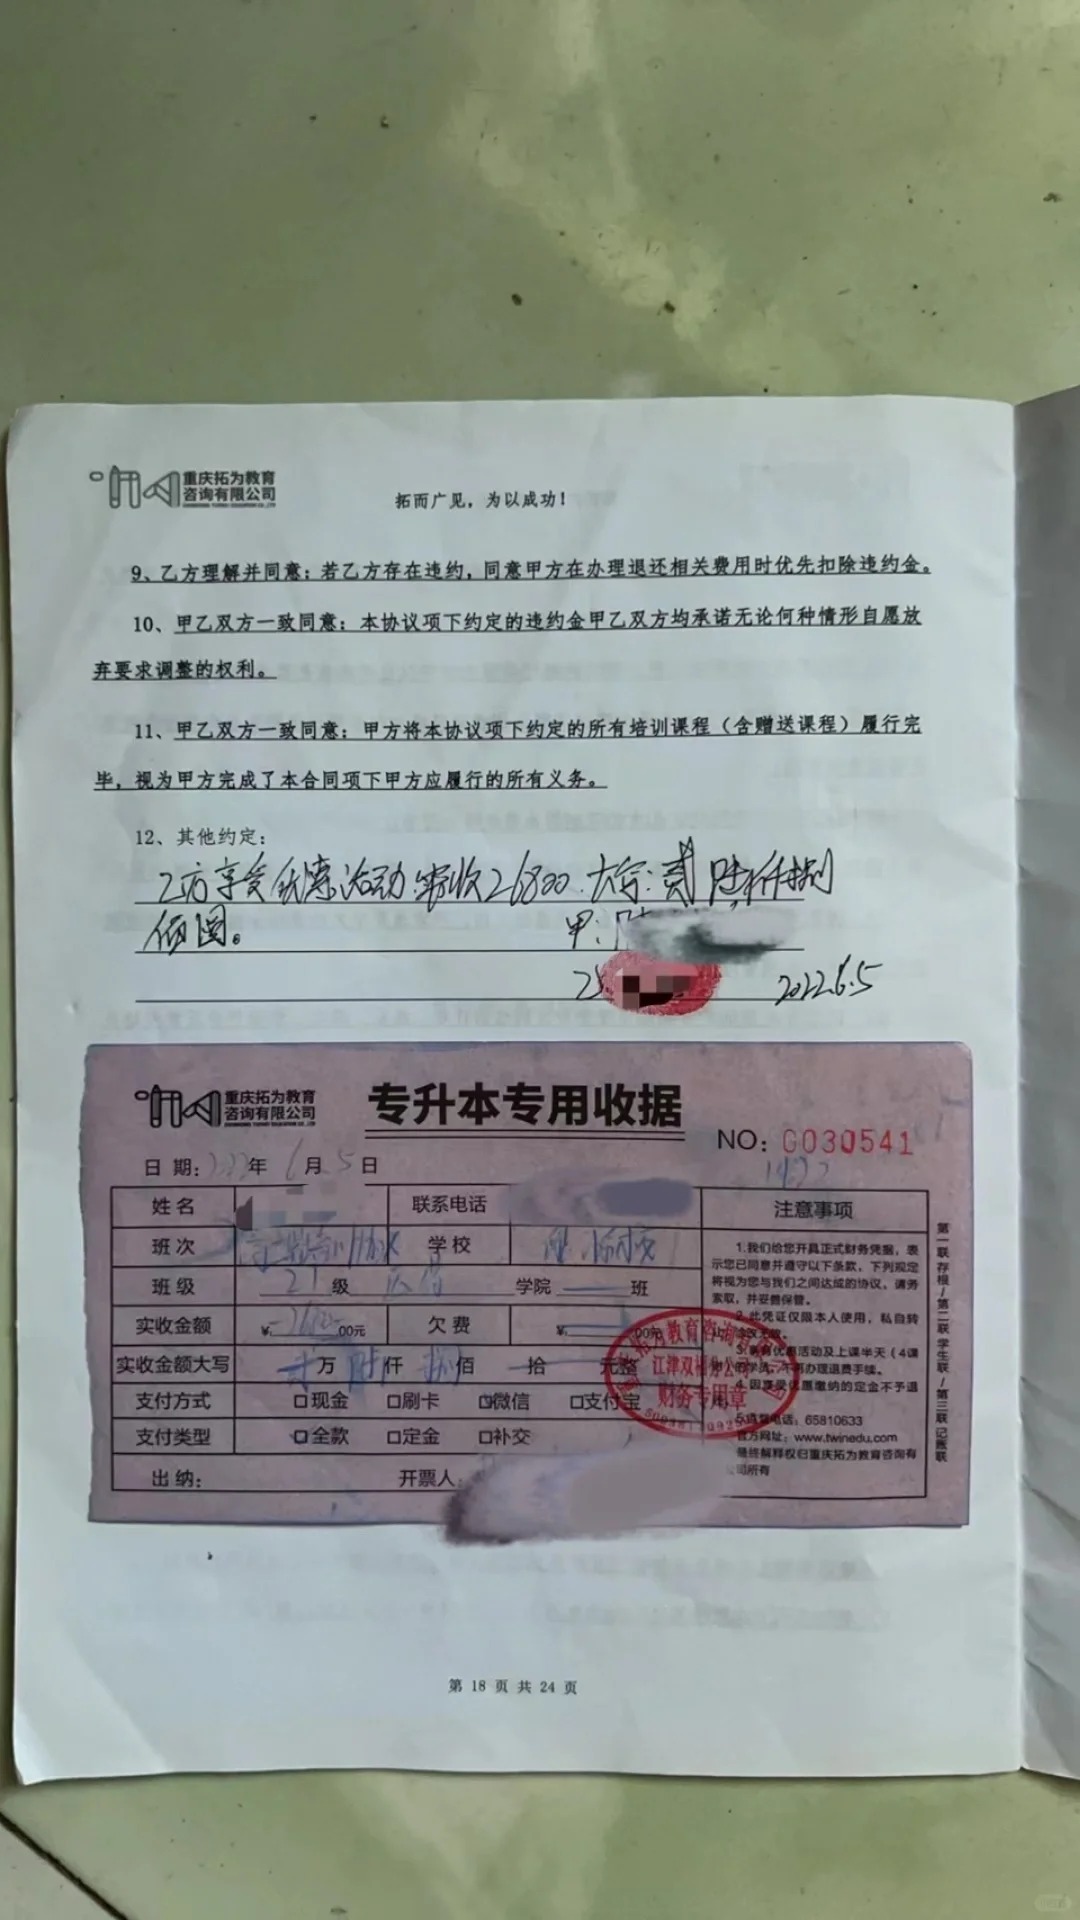 重庆拓为教育
咨询有限公司
拓而广见，为以成功！
9、乙方理解并同意：若乙方存在违约，同意甲方在办理退还相关费用时优先扣除违约金。
10、甲乙双方一致同意：本协议项下约定的违约金甲乙双方均承诺无论何种情形自愿放
弃要求调整的权利。
11、甲乙双方一致同意：甲方将本协议项下约定的所有培训课程（含赠送课程）履行完
毕，视为甲方完成了本合同项下甲方应履行的所有义务。
12、其他约定：
乙方享受优惠活动,实收26800.大写:贰 陆仟捌
佰圆。
甲:
乙: 2022.6.5
重庆拓为教育
咨询有限公司
专升本专用收据
NO: 0030541
日期: 2022年 6月 5日
姓名 联系电话 注意事项
班次 学校
班级 21级 学院 班
实收金额 ¥: 00元 欠费 ¥: 00元
实收金额大写 贰万 陆仟 捌佰 拾 元整
支付方式 □现金 □刷卡 □微信 □支付宝
支付类型 □全款 □定金 □补交
出纳: 开票人:
1.我们给您开具正式财务凭据，表
示您已同意并遵守以下条款，下列规定
将视为您与我们之间达成的协议。请务
索取，并妥善保管。
2.此凭证仅限本人使用，私自转
优惠活动及上课半天（4课
办理退费手续。
4.因享受优惠缴纳的定金不予退
电话：65810633
官方网址：www.twinedu.com
最终解释权归重庆拓为教育咨询有
公司所有
第一联 存根/第二联 学生联/第三联 记账联
江津双福分公司
财务专用章
第 18 页 共 24 页